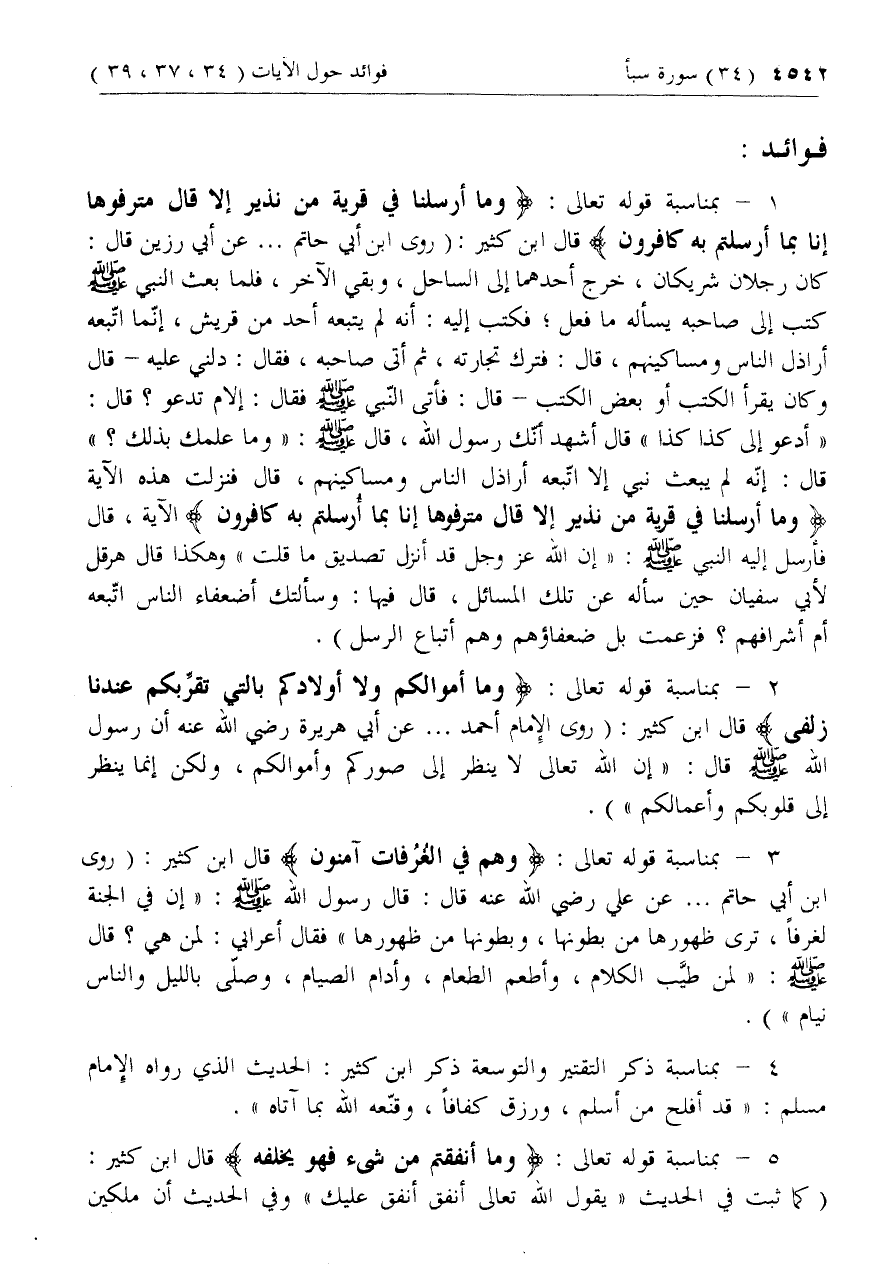 ٤٥٤٢ ( ٣٤ ) سورة سبأ فوائد حول الآيات ( ٣٤ ، ٣٧ ، ٣٩ )
فـوائـد :
١ – بمناسبة قوله تعالى : ﴿ وما أرسلنا في قرية من نذير إلا قال مترفوها
إنا بما أرسلتم به كافرون ﴾ قال ابن كثير : ( روى ابن أبي حاتم ... عن أبي رزين قال :
كان رجلان شريكان ، خرج أحدهما إلى الساحل ، وبقي الآخر ، فلما بعث النبي ﷺ
كتب إلى صاحبه يسأله ما فعل ؛ فكتب إليه : أنه لم يتبعه أحد من قريش ، إنّما اتّبعه
أراذل الناس ومساكينهم ، قال : فترك تجارته ، ثم أتى صاحبه ، فقال : دلني عليه – قال
وكان يقرأ الكتب أو بعض الكتب – قال : فأتى النّبي ﷺ فقال : إلام تدعو ؟ قال :
« أدعو إلى كذا كذا » قال أشهد أنّك رسول الله ، قال ﷺ : « وما علمك بذلك ؟ »
قال : إنّه لم يبعث نبي إلا اتّبعه أراذل الناس ومساكينهم ، قال فنزلت هذه الآية
﴿ وما أرسلنا في قرية من نذير إلا قال مترفوها إنا بما أُرسلتم به كافرون ﴾ الآية ، قال
فأرسل إليه النبي ﷺ : « إن الله عز وجل قد أنزل تصديق ما قلت » وهكذا قال هرقل
لأبي سفيان حين سأله عن تلك المسائل ، قال فيها : وسألتك أضعفاء الناس اتّبعه
أم أشرافهم ؟ فزعمت بل ضعفاؤهم وهم أتباع الرسل ) .
٢ – بمناسبة قوله تعالى : ﴿ وما أموالكم ولا أولادكم بالتي تقرِّبكم عندنا
زلفى ﴾ قال ابن كثير : ( روى الإمام أحمد ... عن أبي هريرة رضي الله عنه أن رسول
الله ﷺ قال : « إن الله تعالى لا ينظر إلى صوركم وأموالكم ، ولكن إنما ينظر
إلى قلوبكم وأعمالكم » ) .
٣ – بمناسبة قوله تعالى : ﴿ وهم في الغُرُفات آمنون ﴾ قال ابن كثير : ( روى
ابن أبي حاتم ... عن علي رضي الله عنه قال : قال رسول الله ﷺ : « إن في الجنة
لغرفاً ، ترى ظهورها من بطونها ، وبطونها من ظهورها » فقال أعرابي : لمن هي ؟ قال
ﷺ : « لمن طيَّب الكلام ، وأطعم الطعام ، وأدام الصيام ، وصلّى بالليل والناس
نيام » ) .
٤ – بمناسبة ذكر التقتير والتوسعة ذكر ابن كثير : الحديث الذي رواه الإمام
مسلم : « قد أفلح من أسلم ، ورزق كفافاً ، وقنّعه الله بما آتاه » .
٥ – بمناسبة قوله تعالى : ﴿ وما أنفقتم من شيء فهو يخلفه ﴾ قال ابن كثير :
( كما ثبت في الحديث « يقول الله تعالى أنفق أنفق عليك » وفي الحديث أن ملكين